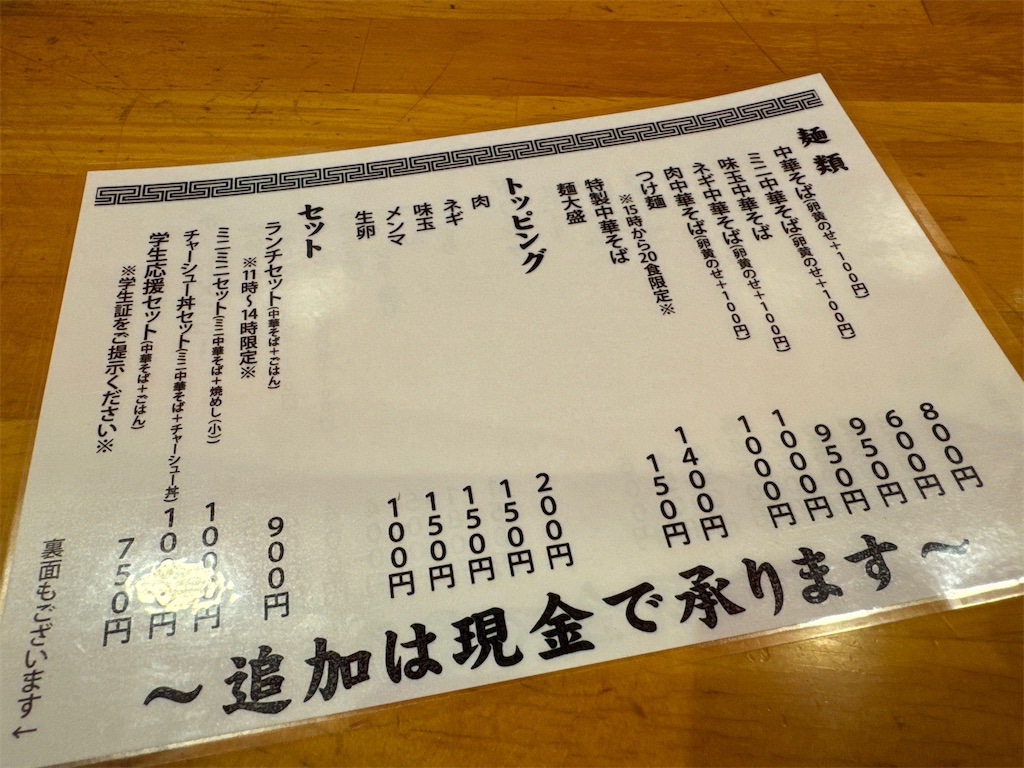 麺類
中華そば(卵黄のせ+100円) 800円
ミニ中華そば(卵黄のせ+100円) 600円
味玉中華そば 950円
ネギ中華そば(卵黄のせ+100円) 950円
肉中華そば(卵黄のせ+100円) 1000円
つけ麺 1000円
※15時から20食限定※
特製中華そば 1400円
麺大盛 150円
トッピング
肉 200円
ネギ 150円
味玉 150円
メンマ 150円
生卵 100円
セット
ランチセット(中華そば+ごはん) 900円
※11時～14時限定※
ミニミニセット(ミニ中華そば+焼めし(小))
チャーシュー丼セット(ミニ中華そば+チャーシュー丼)
学生応援セット(中華そば+ごはん) 750円
※学生証をご提示ください※
～追加は現金で承ります～
裏面もございます←